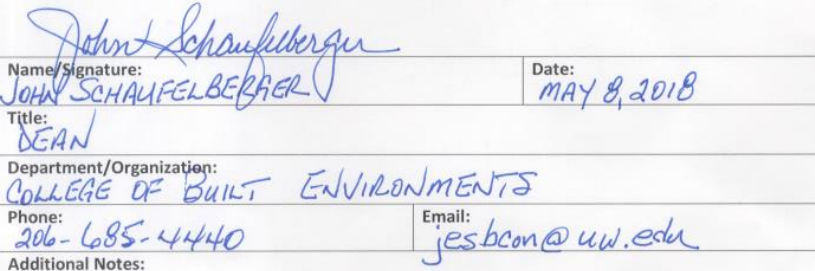 John Schaufelberger
Name/Signature: Date:
JOHN SCHAUFELBERGER MAY 8, 2018
Title:
DEAN
Department/Organization:
COLLEGE OF BUILT ENVIRONMENTS
Phone: Email:
206-685-4440 jesbcon@uw.edu
Additional Notes: